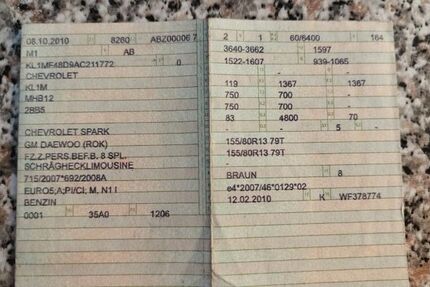 08.10.2010 8260 ABZ00006 7
M1 AB
KL1MF48D9AC211772 0
CHEVROLET
KL1M
MHB12
2BB5
CHEVROLET SPARK
GM DAEWOO (ROK)
FZ.Z.PERS.BEF.B. 8 SPL.
SCHRÄGHECKLIMOUSINE
715/2007*692/2008A
EURO5;A;PI/CI; M, N1 I
BENZIN
0001 35A0 1206
2 1 60/6400 164
3640-3662 1597
1522-1607 939-1065
119 1367 1367
750 700 -
750 700 -
83 4800 70
- 5 -
155/80R13 79T
155/80R13 79T
BRAUN 8
e4*2007/46*0129*02
12.02.2010 K WF378774